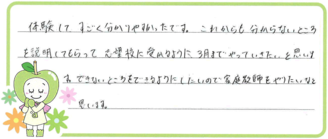 体験して すごく分かりやすかったです。これからも分からないところ
を説明してもらって志望校に受かるように3月までやっていきたいを思いま
す。できないところをできるようにしたいので家庭教師をやりたいなと
思います。